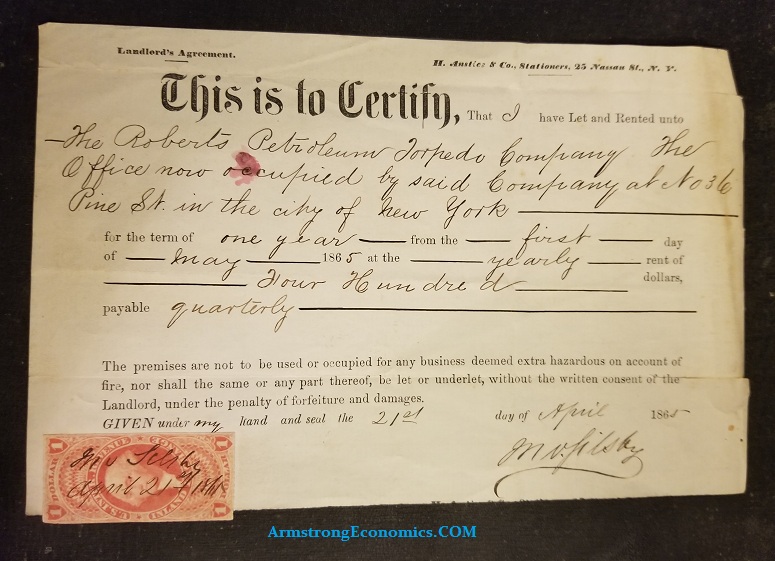 Landlord's Agreement.
H. Anstice & Co., Stationers, 25 Nassau St., N. Y.
This is to Certify, That I have Let and Rented unto
The Roberts Petroleum Torpedo Company The
Office now occupied by said Company at No 36
Pine St. in the city of New York
for the term of one year from the first day
of May 1865 at the yearly rent of
Four Hundred dollars,
payable quarterly
The premises are not to be used or occupied for any business deemed extra hazardous on account of
fire, nor shall the same or any part thereof, be let or underlet, without the written consent of the
Landlord, under the penalty of forfeiture and damages.
GIVEN under my hand and seal the 21st day of April 1865
April 21st
1
1
ArmstrongEconomics.COM